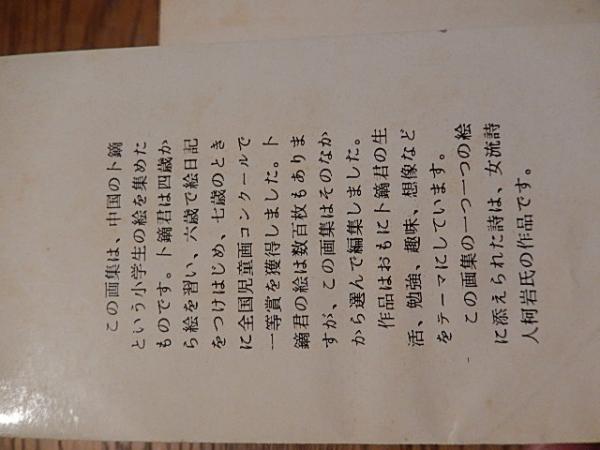 この画集は、中国のト鏑
という小学生の絵を集めた
ものです。ト鏑君は四歳か
ら絵を習い、六歳で絵日記
をつけはじめ、七歳のとき
に全国児童画コンクールで
一等賞を獲得しました。ト
鏑君の絵は数百枚もありま
すが、この画集はそのなか
から選んで編集しました。
作品はおもにト鏑君の生
活、勉強、趣味、想像など
をテーマにしています。
この画集の一つ一つの絵
に添えられた詩は、女流詩
人柯岩氏の作品です。